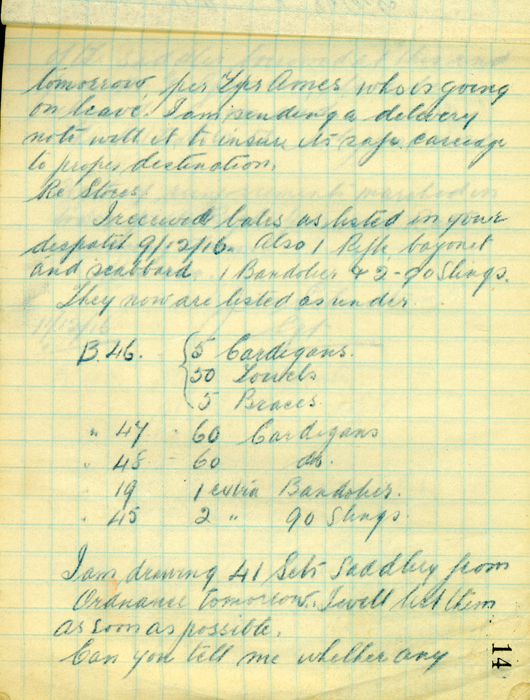 tomorrow, per Tpr Ames who is going
on leave. I am sending a delivery
note with it to insure its safe carriage
to proper destination.
Re Stores
I received bales as listed in your
despatch 9/12/16. Also 1 Rifle, bayonet
and scabbard 1 Bandolier & 2 - 90 Slings.
They now are listed as under.
B. 46. { 5 Cardigans.
50 Towels
5 Braces
" 47 - 60 Cardigans
" 48 - 60 do.
" 19 1 extra Bandolier.
" 45 2 " 90 Slings.
I am drawing 41 Sets Saddlery from
Ordnance tomorrow. I will list them
as soon as possible.
Can you tell me whether any
14